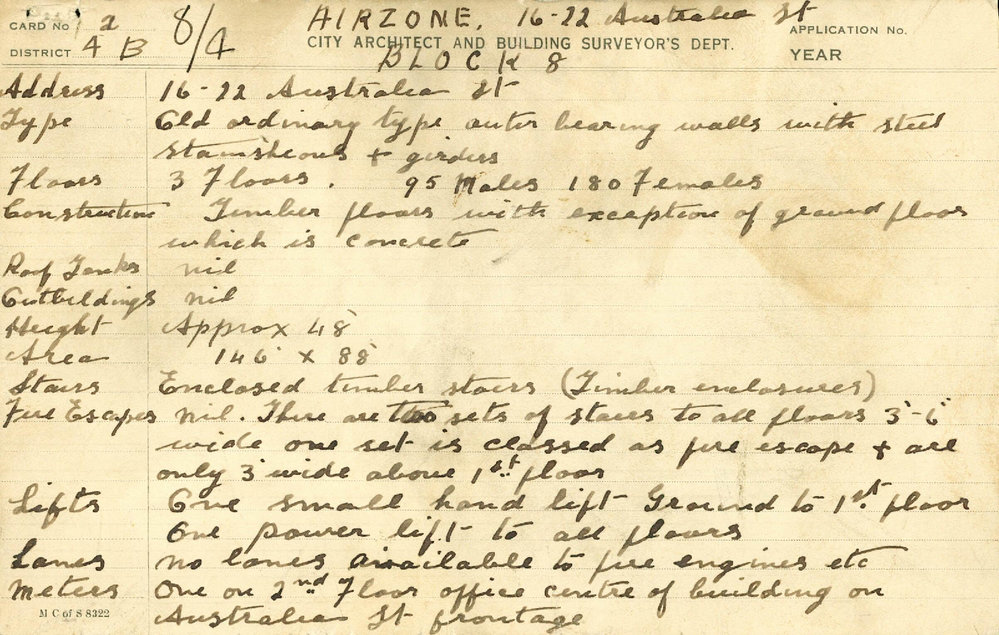 AIRZONE. 16-22 Australia St
CARD No 2
8/4
CITY ARCHITECT AND BUILDING SURVEYOR'S DEPT.
APPLICATION No.
DISTRICT 4 B
BLOCK 8
YEAR
Address 16-22 Australia St
Type Old ordinary type outer bearing walls with steel
stansheons + girders
Floors 3 Floors. 95 Males 180 Females
Construction Timber floors with exception of ground floor
which is concrete
Roof Tanks nil
Outbuildings nil
Height Approx 48'
Area 146' x 88'
Stairs Enclosed timber stairs (Timber enclosures)
Fire Escapes nil. There are two sets of stairs to all floors 3'-6"
wide one set is classed as fire escape + are
only 3' wide above 1st floor
Lifts One small hand lift Ground to 1st floor
One power lift to all floors
Lanes no lanes available to fire engines etc
Meters One on 2nd Floor office centre of building on
M C of S 8322
Australia St frontage